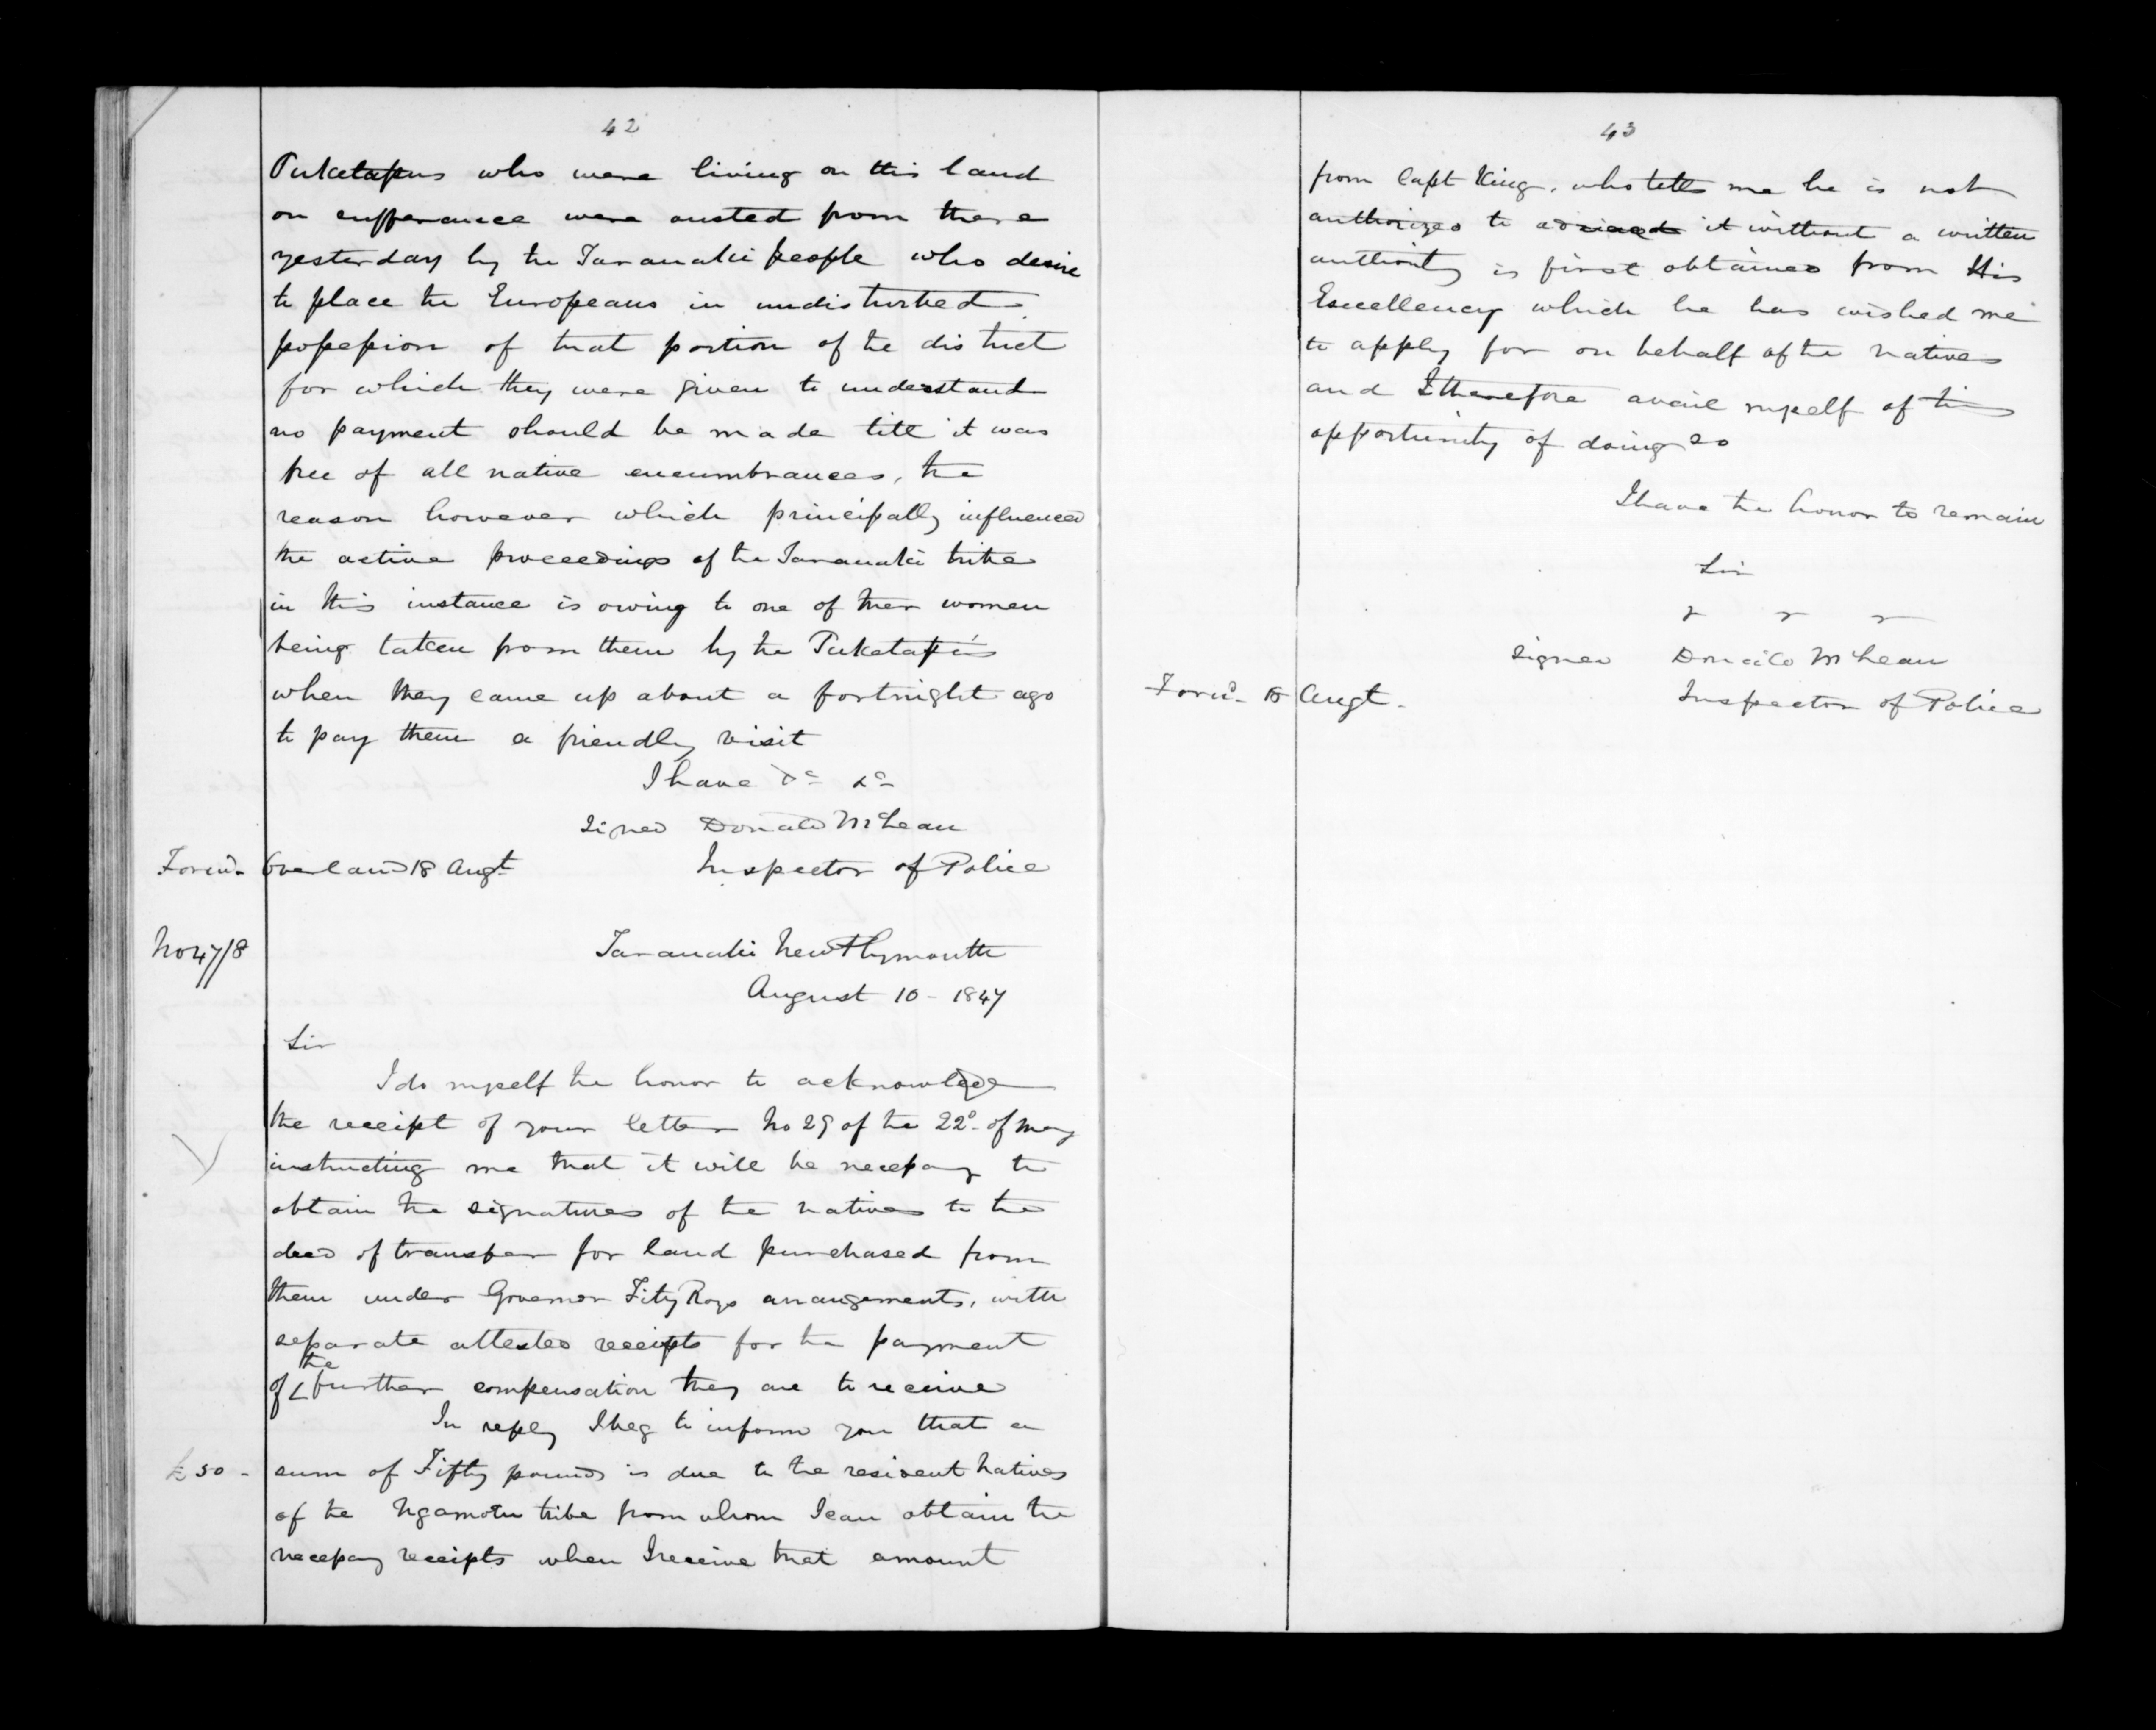 42
Puketapus who were living on this land
on sufferance were ousted from there
yesterday by the Taranaki people who desire
to place the Europeans in undisturbed
possession of that portion of the district
for which they were given to understand
no payment should be made till it was
free of all native encumbrances, the
reason however which principally influenced
the active proceedings of the Taranaki tribe
in this instance is owing to one of their women
being taken from them by the Puketapus
when they came up about a fortnight ago
to pay them a friendly visit
I have &c &c
Signed Donald McLean
Forwd. Overland 18 Augt Inspector of Police
No 47/8 Taranaki New Plymouth
August 10 - 1847
Sir
I do myself the honor to acknowledge
the receipt of your letter No 29 of the 22d. of May
instructing me that it will be necessary to
obtain the signatures of the natives to the
deed of transfer for land purchased from
them under Governor FitzRoys arrangements, with
separate attested receipts for the payment
of the further compensation they are to receive
In reply I beg to inform you that a
£50 - sum of Fifty pounds is due to the resident Natives
of the Ngamotu tribe from whom I can obtain the
necessary receipts when I receive that amount
43
from Capt King, who tells me he is not
authorized to it without a written
authority is first obtained from His
Excellency which he has wished me
to apply for on behalf of the natives
and I therefore avail myself of this
opportunity of doing so
I have the honor to remain
Sir
Signed Donald McLean
Forwd. 18 Augt. Inspector of Police